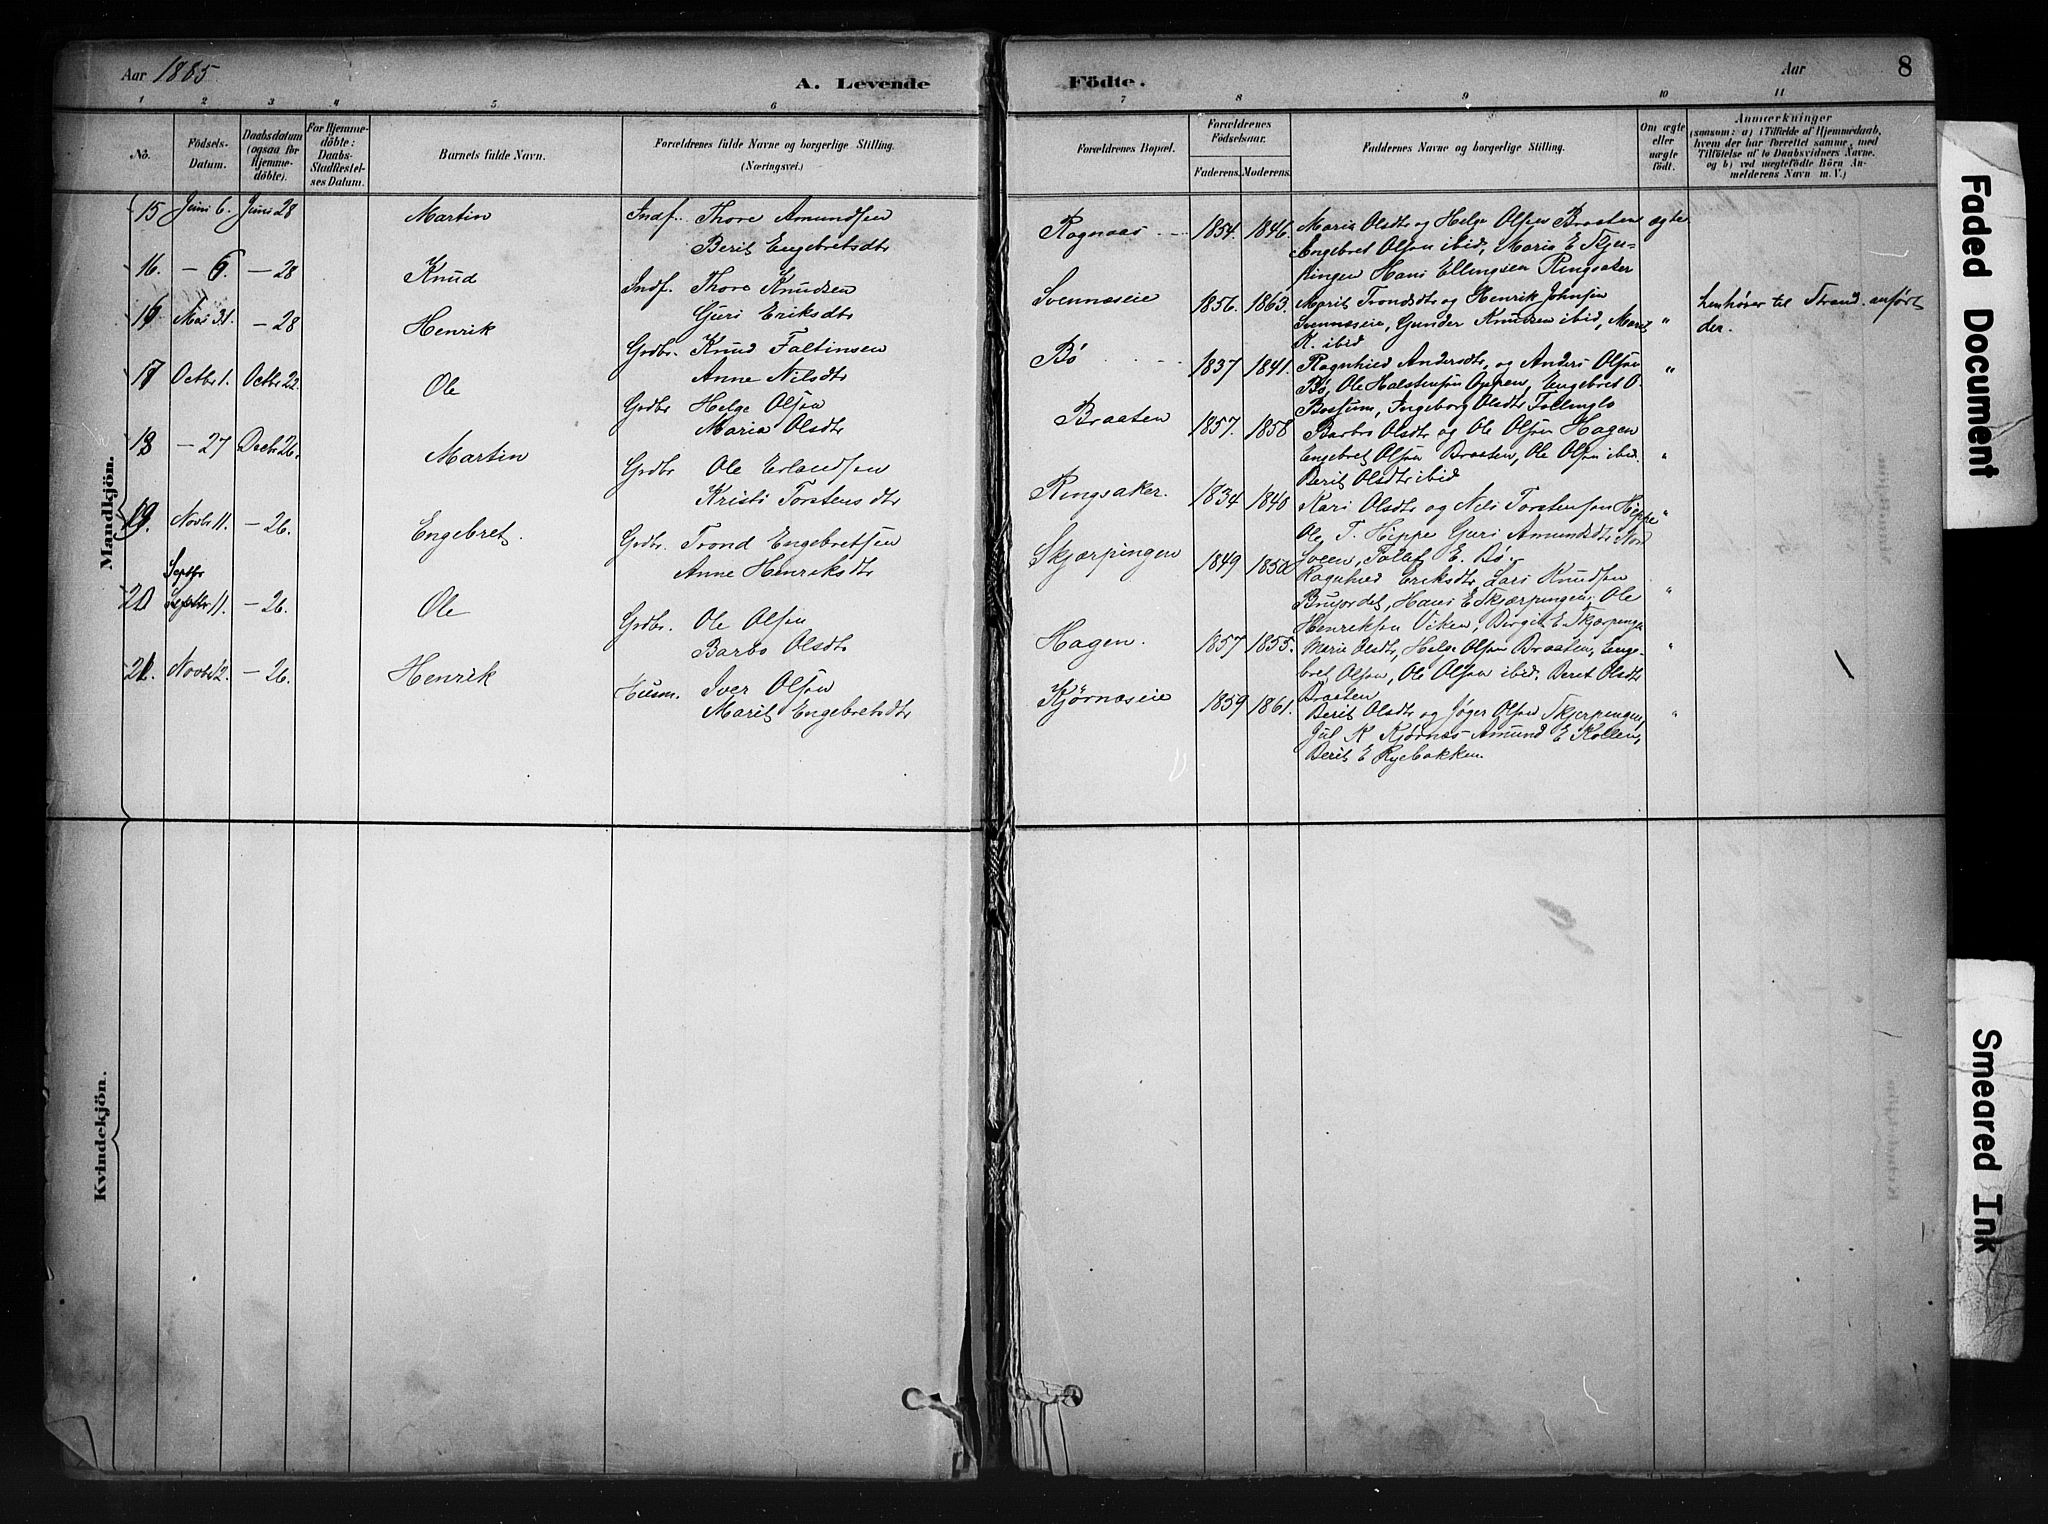 Aar 1885
A. Levende
1 2 3 4 5 6
No.
Födsels-Datum.
Daabsdatum (ogsaa for Hjemme-döbte).
For Hjemme-döbte: Daabs-Stadfæstel-ses Datum.
Barnets fulde Navn.
Forældrenes fulde Navne og borgerlige Stilling. (Næringsvei.)
Mandkjön.
15 Juni 6. Juni 28 Martin Indf. Thore Amundsen
Berit Engebretsdtr
16. – 6. – 28 Knud Indf. Thore Knudsen
Guri Eriksdtr
16 Mai 31. – 28 Henrik Grdbr. Knud Faltinsen
Anne Nilsdtr
17 Octbr 1. Octbr 22. Ole Grdbr Helge Olsen
Maria Olsdtr
18 – 27 Decbr 26. Martin Grdbr Ole Erlandsen
Kristi Torstensdtr
19. Novbr 11. – 26. Engebret. Grdbr. Trond Engebretsen
Anne Henriksdtr
Septbr
20 11. – 26. Ole Grdbr. Ole Olsen
Barbo Olsdtr
21. Novbr 2. – 26. Henrik Husm. Iver Olsen
Marit Engebretsdtr
Kvindekjön.
Födte.
Aar 8
7 8 9 10 11
Forældrenes Bopæl.
Forældrenes Födselsaar.
Faderens. Moderens.
Faddernes Navne og borgerlige Stilling.
Om ægte eller uægte födt.
Anmærkninger
(saasom: a) i Tilfælde af Hjemmedaab,
hvem der har forrettet samme, med
Tilföielse af to Daabsvidners Navne.
og b) ved uægtefödte Börn An-
melderens Navn m. V.)
Rognaas 1854. 1846. Maria Olsdtr og Helge Olsen Braaten ægte
Engebret Olsen ibid, Maria E Skjer-
pingen Hans Ellingsen Ringsaker
Svennæseie 1856. 1863. Marit Trondsdtr og Henrik Johnsen
Svennæseie, Gunder Knudsen ibid, Marit "
K. ibid
henhører til Strand. anført
der.
Bö 1837 1841. Ragnhild Andersdtr, og Anders Olsen "
Bö, Ole Halstensen Oppen, Engebret O.
Bostum, Ingeborg Olsdtr Follinglo
Braaten 1857. 1858 Barbro Olsdtr og Ole Olsen Hagen
Engebret Olsen Braaten, Ole Olsen ibid. "
Berit Olsdtr ibid
Ringsaker. 1834 1840 Kari Olsdtr og Nils Torstensen Hippe "
Ole T. Hippe Guri Amundsdtr Nord
Sveen, Tollef E. Bö.
Skjærpingen 1849 1850 Ragnhild Eriksdtr Lars Knudsen
Brujordet, Hans E Skjærpingen. Ole "
Henriksen Viken, Birgit E Skjerpingen
Hagen. 1857 1855. Marie Olsdtr, Helge Olsen Braaten, Enge- "
bret Olsen, Ole Olsen ibid. Beret Olsdtr
Braaten
Kjörnæseie 1859 1861. Berit Olsdtr og Jøger Olsen Skjerpengen, "
Jul K Kjörnæs Amund E Kollen,
Berit E Ryebakken.
Faded Document
Smeared Ink